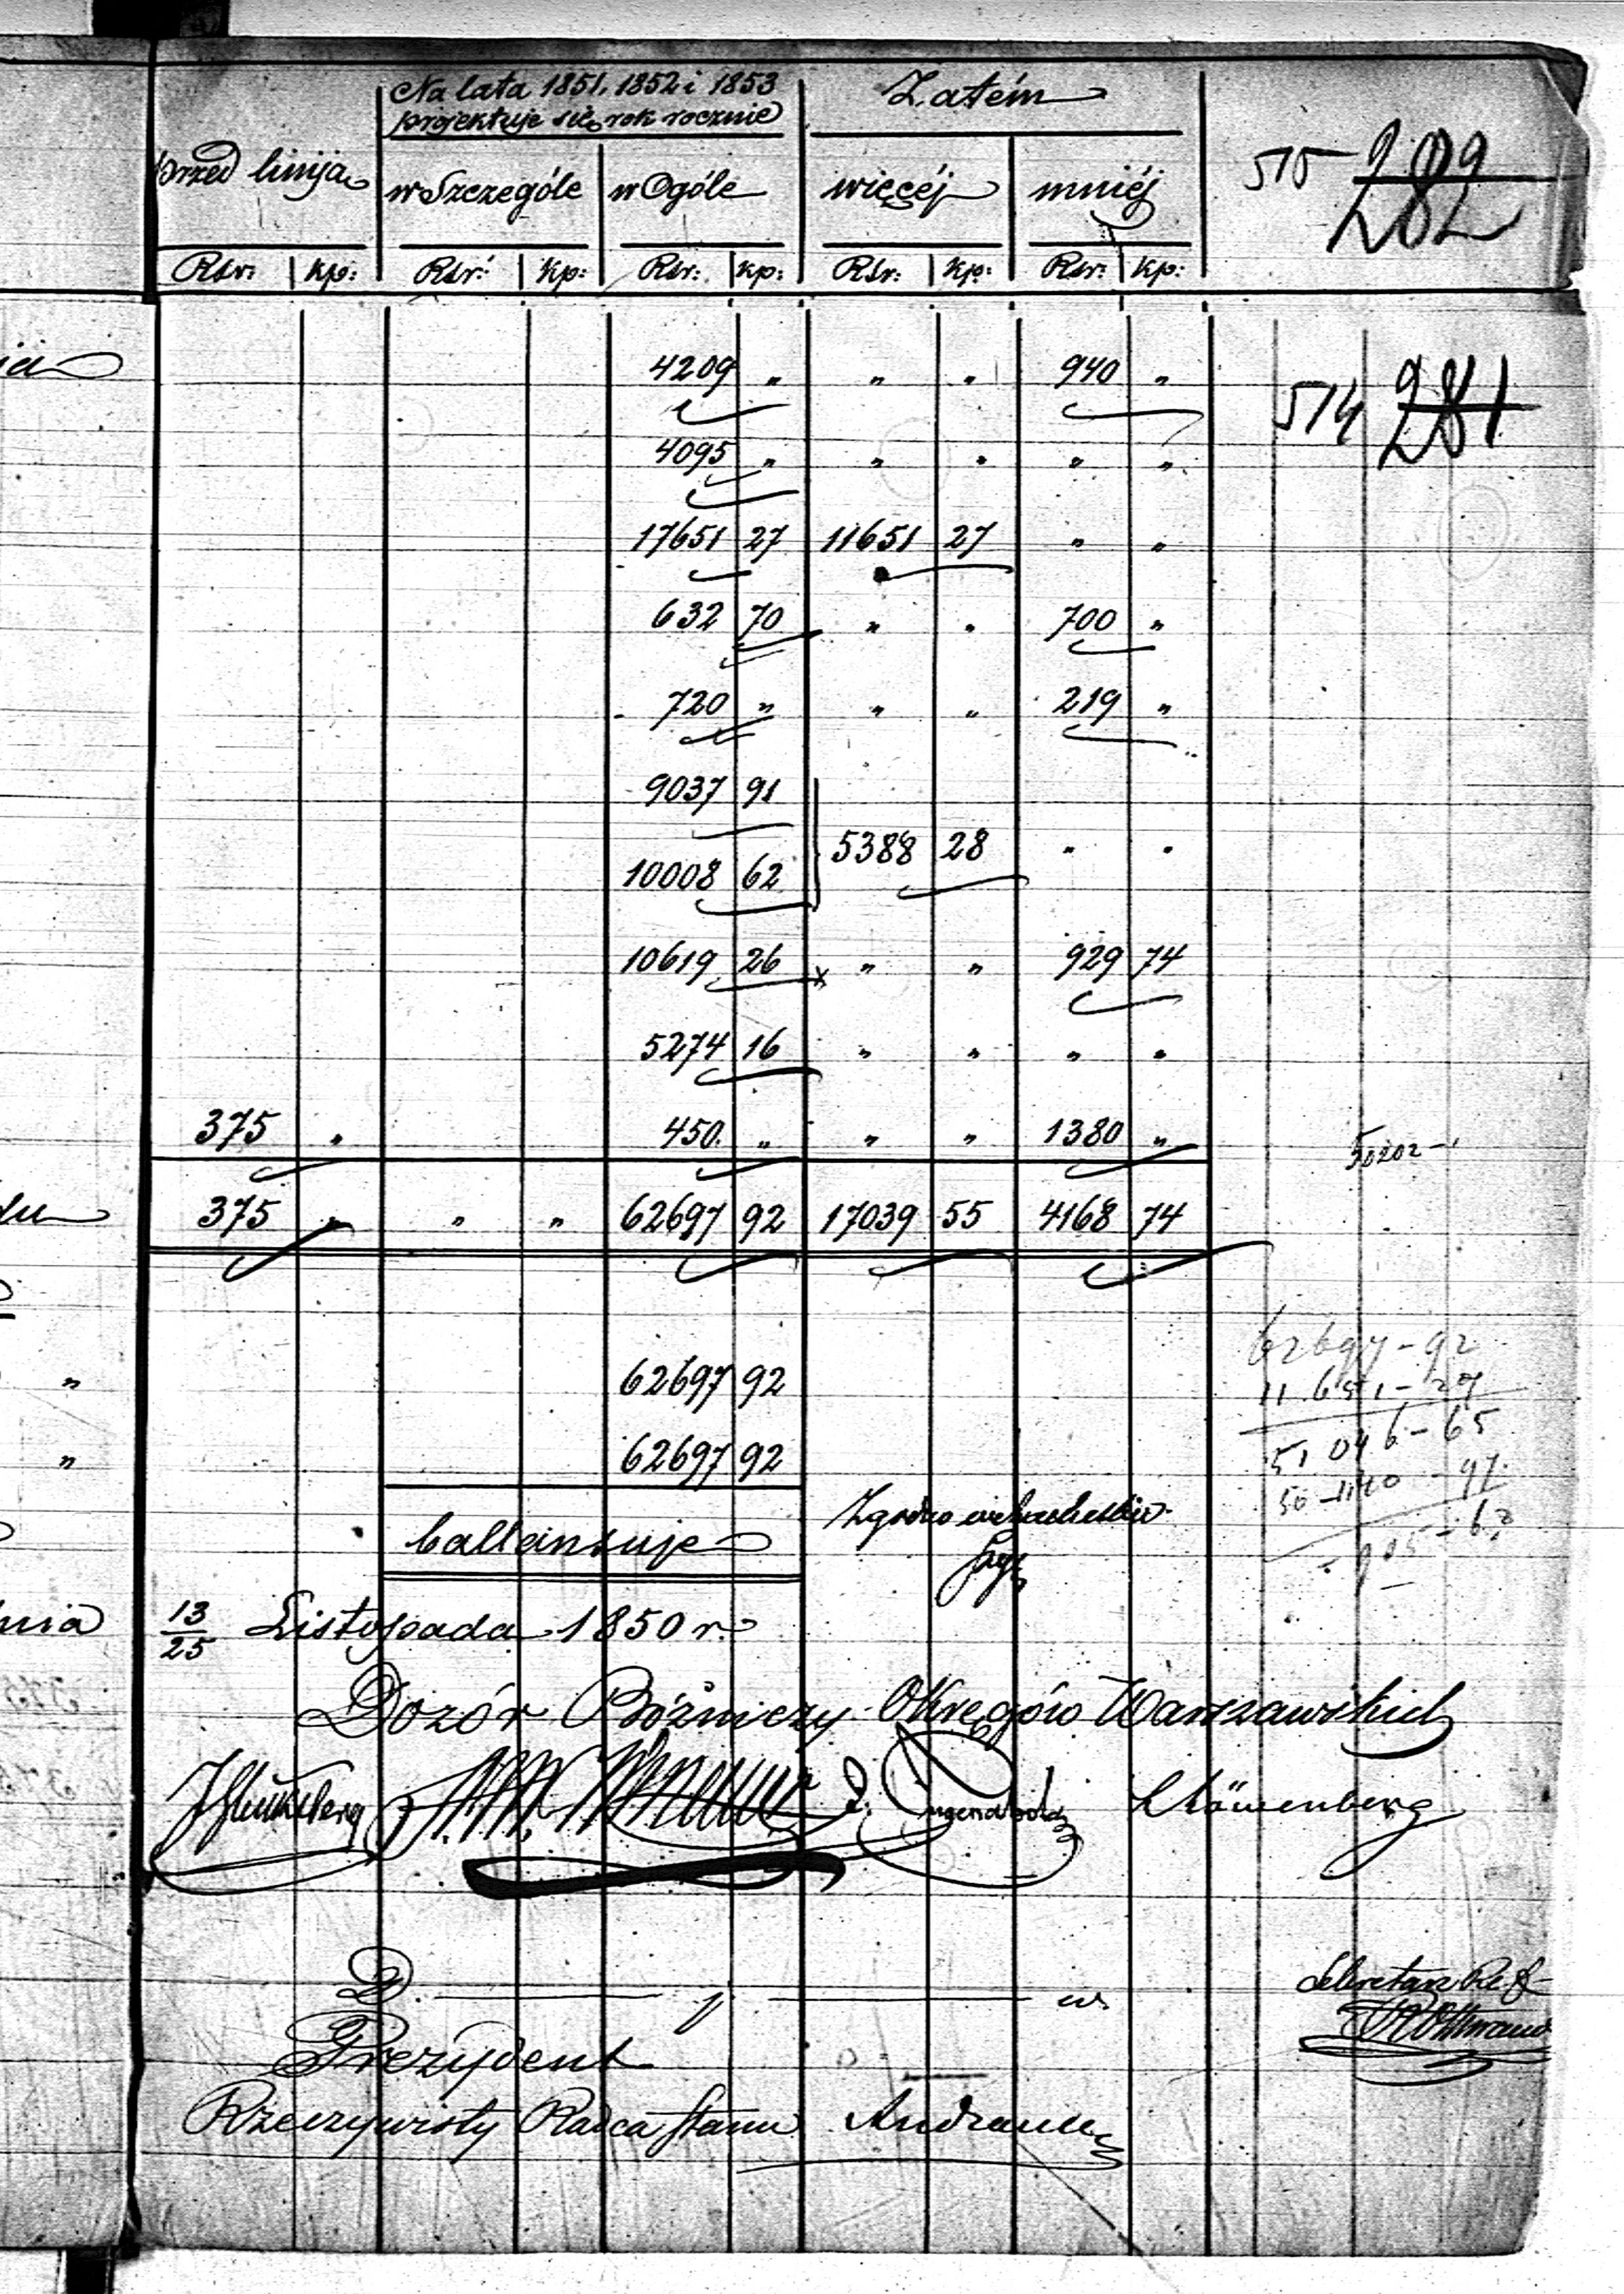 Na lata 1851, 1852 i 1853 Zatém
projektuje się rok rocznie
przed linija w Szczególe w Ogóle więcéj mniéj 515 282
Rsr: kp: Rsr: kp: Rsr: kp: Rsr: kp: Rsr: kp:
4209 „ „ „ 940 „ 514 281
4095 „ „ „ „ „
17651 27 11651 27 „ „
632 70 „ „ 700 „
720 „ „ „ 219 „
9037 91
5388 28 „ „
10008 62
10619 26 „ „ 929 74
5274 16 „ „ „ „
375 „ 450 „ „ „ 1380 „
50202 -
375 „ „ „ 62697 92 17039 55 4168 74
62697 - 92
„ 62697 92 11651 - 27
51046 - 65
„ 62697 92
ballansuje Zgodno
13/25 Listopada 1850 r.
Dozór Bóźniczy Okręgów Warszawskich
Jugendbold Löwenberg
D. j w.
Sekretarz
Prezydent
Rzeczywisty Radca Stanu Andrault